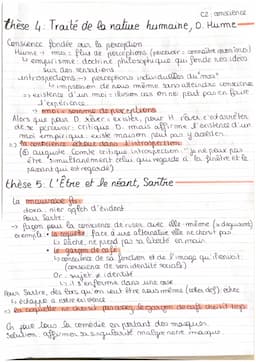 C2: conscience
thèse 4: Traité de la nature humaine, D. Hume
Conscience fondée sur la perception
Hume → moi = flux de perceptions (percevoir = connaître
↳ empirisme: doctrine philosophique qui fonde nos idées
sur nos sensations
introspection → perceptions individuelles du "moi"
↳ impression de nous même sans atteindre conscience
→ existence d'un moi = illusion car on ne peut pas en faire
l'expérience
→ moi = somme de perceptions
Alors que pour D. exister, pour H. exister
se percevoir: critique D. mais affirme l'existence d'un
moi empirique: existe maison peut pas y accéder
→ la conscience échoue dans l'introspection
(6) auguste Comte critique introspection: "je ne peux pas
être simultanément celui qui regarde à la fenêtre et le
passant qui est regardé)
thèse 5: L'Être et le néant, Sartre
La mauvaise foi
doxa: nier objet d'évident
Pour Sartre:
→ façon pour la conscience de ruser avec elle même
exemple: • la coquette face à une alternative elle ne choisit pas
↳ lâche, ne prend pas sa liberté en main
• le garçon de café
↳ conscience de sa fonction et de l'image qu'il renvoit
(conscience de son identité sociale)
Or: sujet ≠ identité
↳ il s'enferme dans une case
Pour Sartre, dès lors qu'on veut être sous même (rôles def) chez
↳ échappe à notre existence
↳ la coquette ne choisit pas assez, le garçon de café choisit trop
On joue tous la comédie en portant des masques
Solution: affirmer sa singularité malgré notre masque